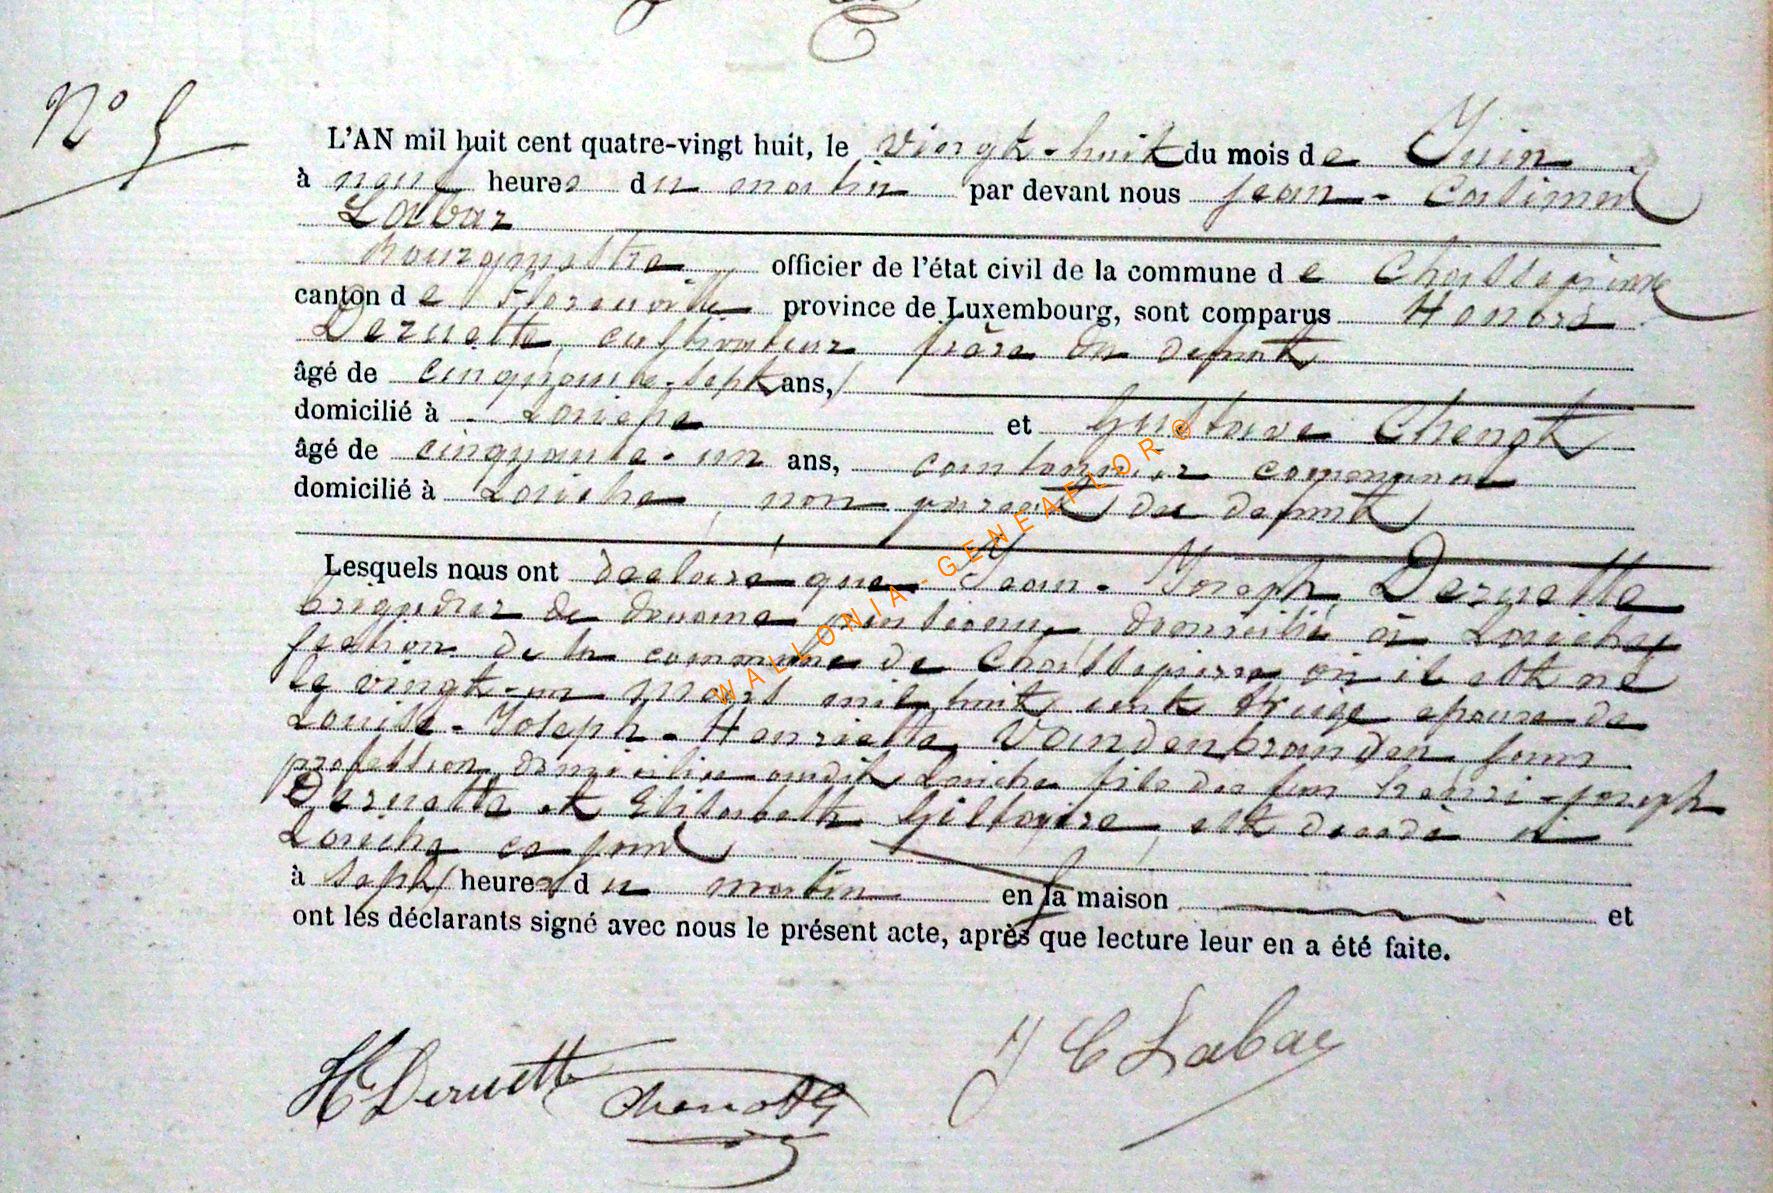 N° 5
L'AN mil huit cent quatre-vingt huit, le vingt-huit du mois de Juin
à neuf heures du matin par devant nous Jean-Casimir
Labar
bourgmestre officier de l'état civil de la commune de Chassepierre
canton de Florenville province de Luxembourg, sont comparus Honoré
Deruette, cultivateur frère du defunt
âgé de cinquante-sept ans,
domicilié à Laiche et Gustave Chenot
âgé de cinquante-un ans, cantonnier communal
domicilié à Laiche, non parent du defunt
Lesquels nous ont declaré que Jean-Joseph Deruette
brigadier de douane pensionné, domicilié à Laiche,
section de la commune de Chassepierre où il est né
le vingt-un Mars mil huit cent treize epoux de
Louise-Joseph-Henriette Vandenbranden, sans
profession, domiciliée audit Laiche fils des feu Henri-Joseph
Deruette et Elisabeth Giltaire, est decedé à
Laiche ce jourd
à sept heures du matin en sa maison et
ont les déclarants signé avec nous le présent acte, après que lecture leur en a été faite.
H Deruette Chenot G J C Labar
WALLONIA-GENEAFLOR©